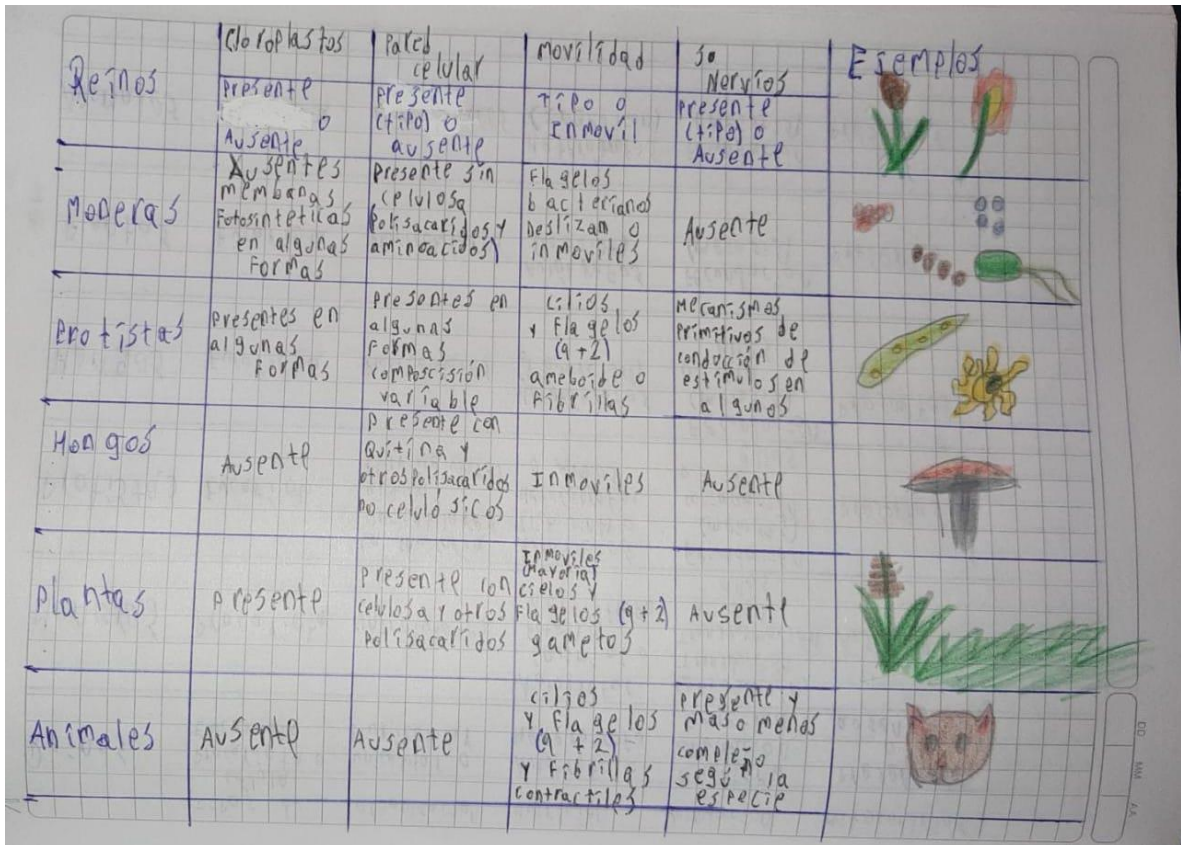 Reinos
Cloroplastos
Presente
o
Ausente
Pared
celular
Presente
(tipo) o
ausente
Movilidad
Tipo o
Inmovil
So
Nervios
Presente
(tipo) o
Ausente
Ejemplos
Moneras
Ausentes
membanas
Fotosinteticas
en algunas
Formas
Presente sin
celulosa
Polisacaridos y
aminoacidos)
Flagelos
bacterianos
Deslizan o
inmoviles
Ausente
Protistas
Presentes en
algunas
Formas
Presentes en
algunas
Formas
composcisión
variable
Cilios
y Flagelos
(9+2)
ameboide o
Fibrillas
Mecanismos
Primitivos de
conducción de
estimulos en
algunos
Hongos
Ausente
Presente con
Quitina y
otros Polisacaridos
no celulósicos
Inmoviles
Ausente
Plantas
Presente
Presente con
celulosa y otros
Polisacaridos
Inmoviles
(Mayoria)
cielos y
Flagelos (9+2)
gametos
Ausente
Animales
Ausente
Ausente
Cilios
y Flagelos
(9+2)
y Fibrillas
contractiles
Presente y
mas o menos
complejo
según la
especie
DD
MM
AA